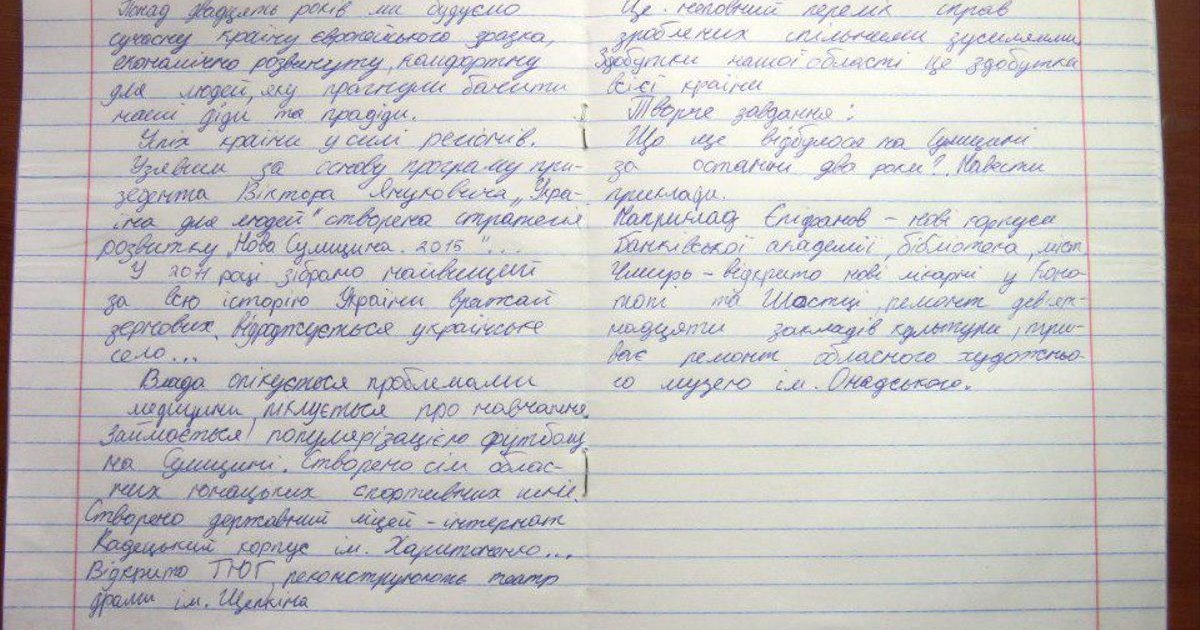 Понад двадцять років ми будуємо
сучасну країну європейського зразка,
економічно розвинуту, комфортну
для людей, яку прагнули бачити
наші діди та прадіди.
Успіх країни у силі регіонів.
Узявши за основу програму пре-
зедента Віктора Януковича „Укра-
їна для людей" створена стратегія
розвитку „Нова Сумщина. 2015"...
У 2011 році зібрано найвищий
за всю історію України врожай
зернових, відроджується українське
село...
Влада опікується проблемами
медицини, піклується про навчання.
Займається популярізацією футболу
на Сумщині. Створено сім облас-
них юнацьких спортивних шкіл.
Створено державний ліцей-інтернат
Кадецький корпус ім. Харитоненко...
Відкрито ТЮГ, реконструюють театр
драми ім. Щепкіна
Це неповний перелік справ
зроблених спільними зусиллями.
Здобутки нашої області це здобутки
всієї країни
Творче завдання:
Що ще відбулося на Сумщині
за останні два роки? Навести
приклади.
Наприклад Єпіфанов – нові корпуса
банківської академії, бібліотека,
Чмирь – відкрито нові лікарні у Коно-
топі та Шостці, ремонт дев'ят-
надцяти закладів культури, три-
ває ремонт обласного художньо-
го музею ім. Онадського.